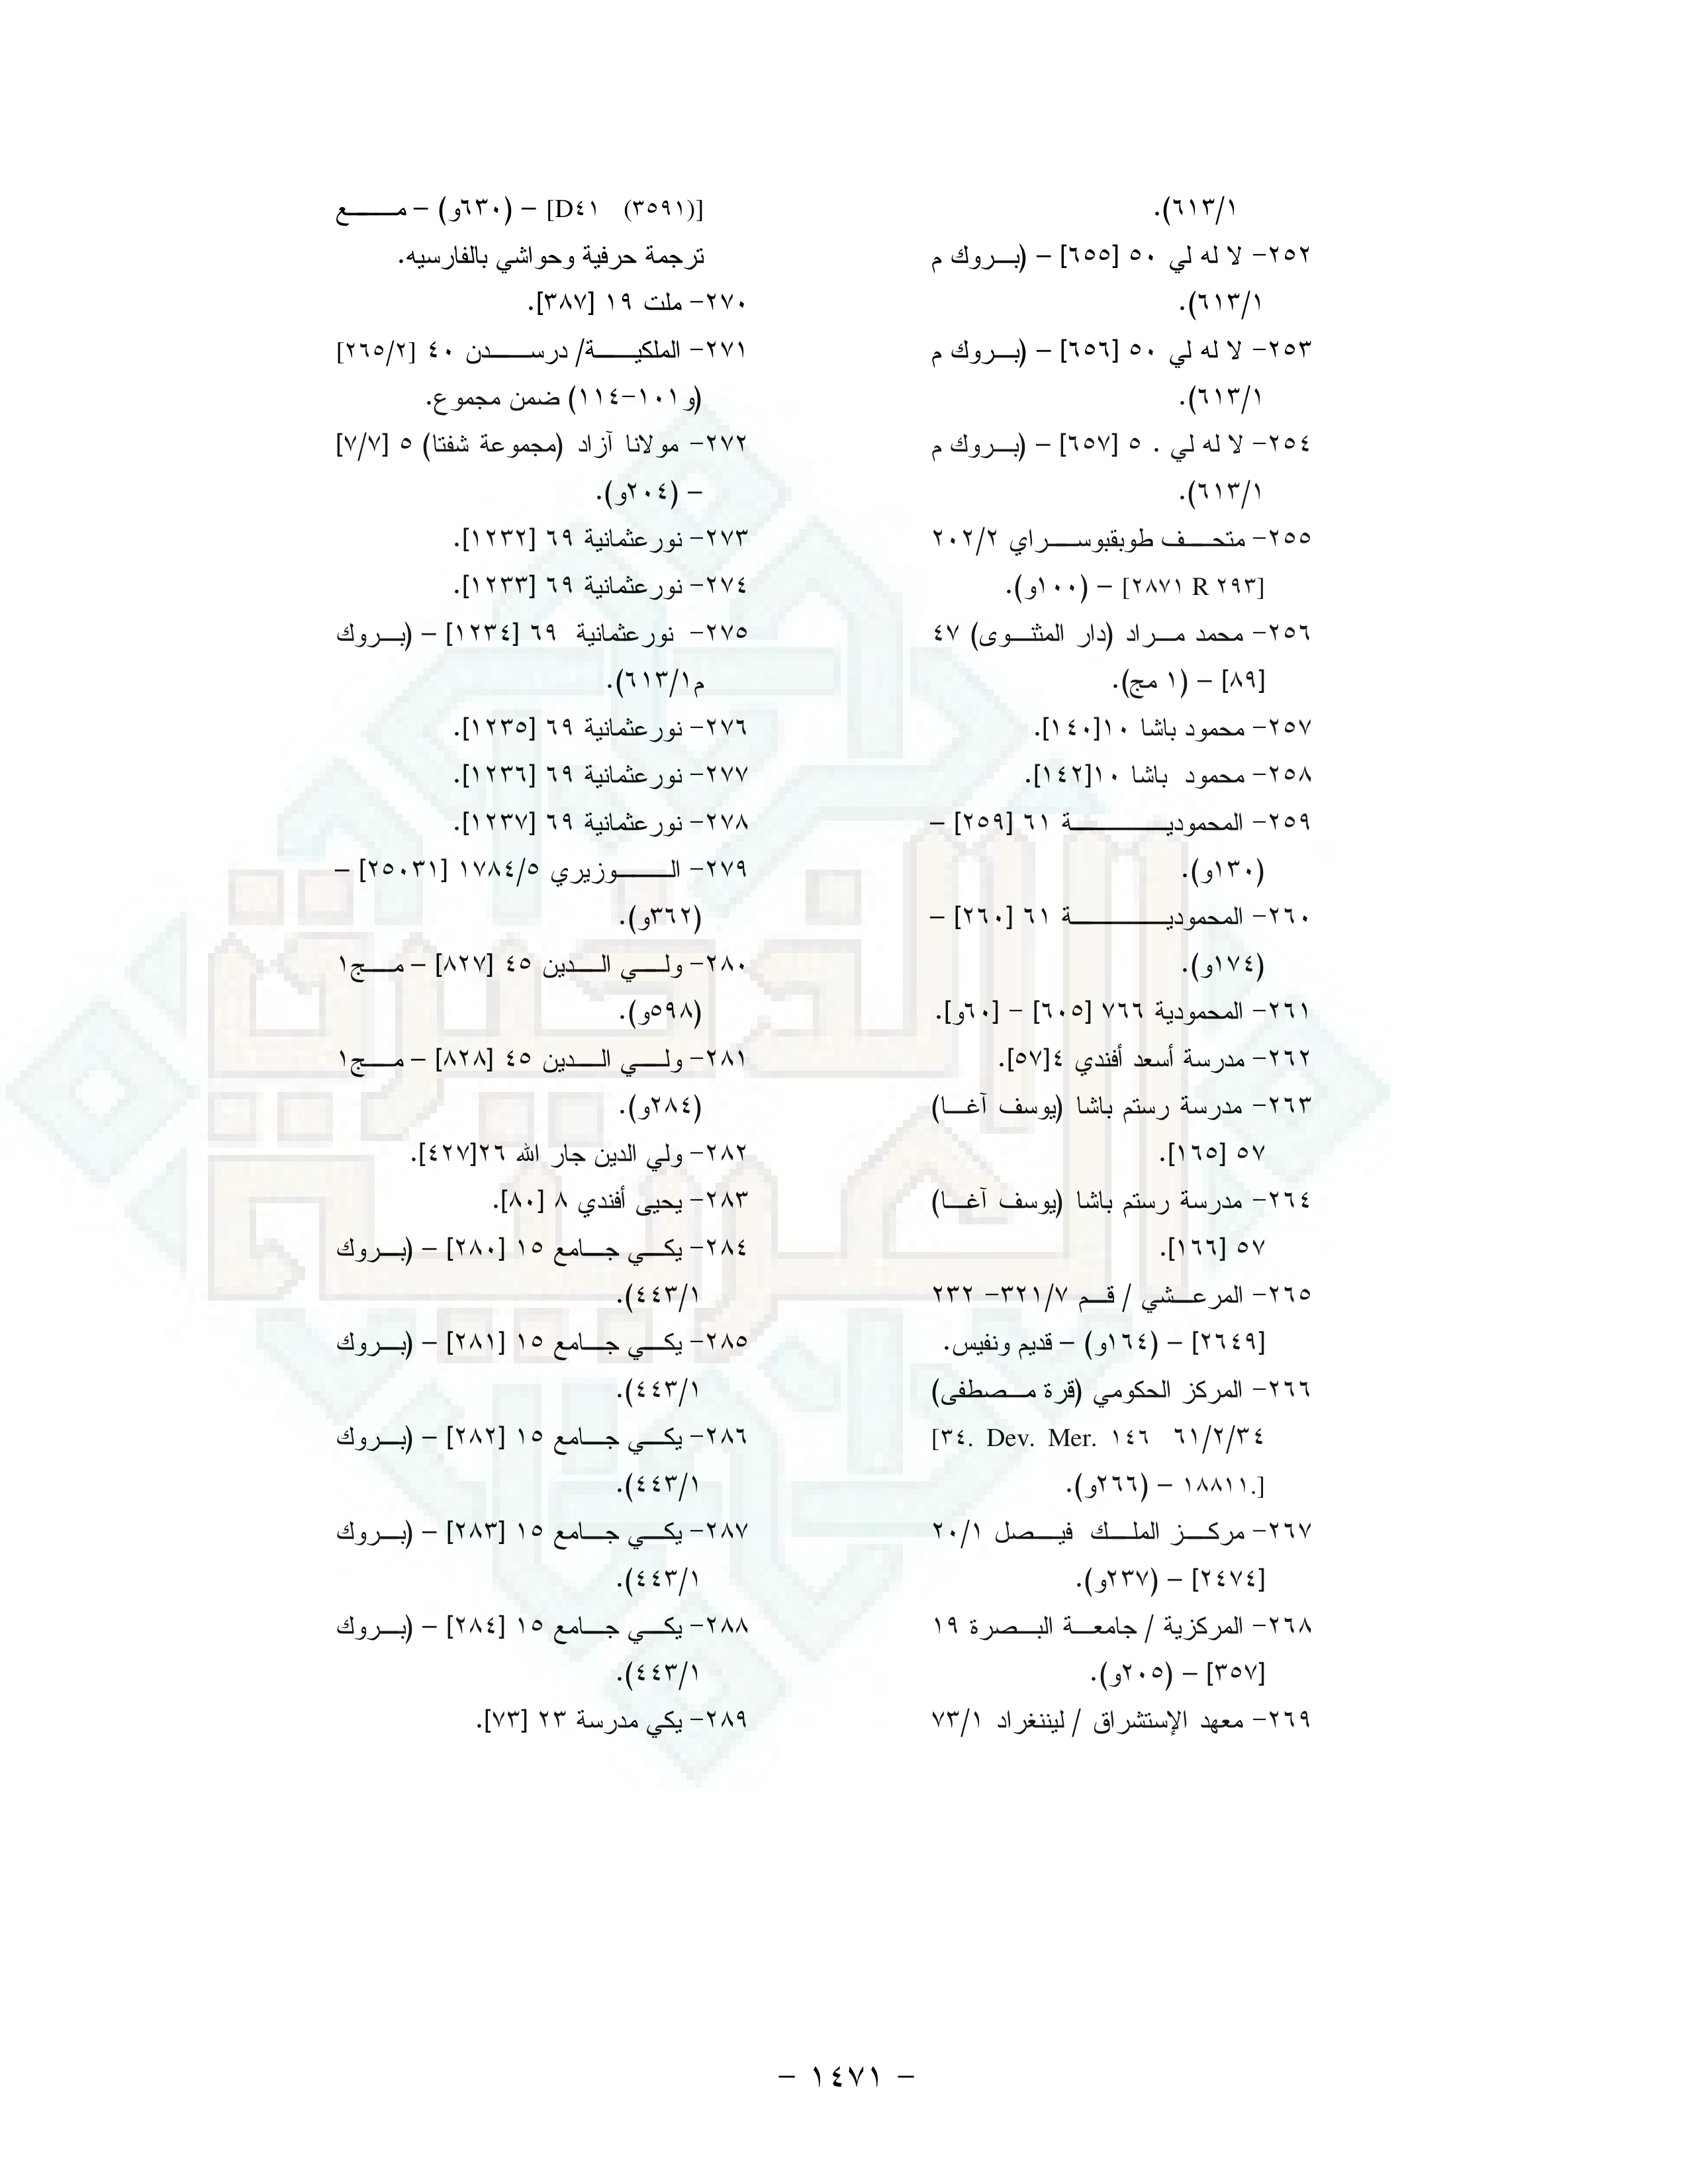 ٦١٣/١).
٢٥٢- لا له لي ٥٠ [٦٥٥] – (بروك م
٦١٣/١).
٢٥٣- لا له لي ٥٠ [٦٥٦] – (بروك م
٦١٣/١).
٢٥٤- لا له لي ٥٠ [٦٥٧] – (بروك م
٦١٣/١).
٢٥٥- متحف طوبقبوسراي ٢٠٢/٢
[٢٨٧١ R ٢٩٣] – (١٠٠و).
٢٥٦- محمد مراد (دار المثنوى) ٤٧
[٨٩] – (١ مج).
٢٥٧- محمود باشا ١٠[١٤٠].
٢٥٨- محمود باشا ١٠[١٤٢].
٢٥٩- المحمودية ٦١ [٢٥٩] –
(١٣٠و).
٢٦٠- المحمودية ٦١ [٢٦٠] –
(١٧٤و).
٢٦١- المحمودية ٧٦٦ [٦٠٥] – [٦٠و].
٢٦٢- مدرسة أسعد أفندي ٤[٥٧].
٢٦٣- مدرسة رستم باشا (يوسف آغا)
٥٧ [١٦٥].
٢٦٤- مدرسة رستم باشا (يوسف آغا)
٥٧ [١٦٦].
٢٦٥- المرعشي / قم ٣٢١/٧- ٢٣٢
[٢٦٤٩] – (١٦٤و) – قديم ونفيس.
٢٦٦- المركز الحكومي (قرة مصطفى)
٦١/٢/٣٤ [٣٤. Dev. Mer. ١٤٦
١٨٨١١.] – (٢٦٦و).
٢٦٧- مركز الملك فيصل ٢٠/١
[٢٤٧٤] – (٢٣٧و).
٢٦٨- المركزية / جامعة البصرة ١٩
[٣٥٧] – (٢٠٥و).
٢٦٩- معهد الإستشراق / ليننغراد ٧٣/١
[(٣٥٩١) D٤١] – (٦٣٠و) – مع
ترجمة حرفية وحواشي بالفارسيه.
٢٧٠- ملت ١٩ [٣٨٧].
٢٧١- الملكية/ درسدن ٤٠ [٢٦٥/٢]
(و١٠١-١١٤) ضمن مجموع.
٢٧٢- مولانا آزاد (مجموعة شفتا) ٥ [٧/٧]
– (٢٠٤و).
٢٧٣- نورعثمانية ٦٩ [١٢٣٢].
٢٧٤- نورعثمانية ٦٩ [١٢٣٣].
٢٧٥- نورعثمانية ٦٩ [١٢٣٤] – (بروك
م٦١٣/١).
٢٧٦- نورعثمانية ٦٩ [١٢٣٥].
٢٧٧- نورعثمانية ٦٩ [١٢٣٦].
٢٧٨- نورعثمانية ٦٩ [١٢٣٧].
٢٧٩- الوزيري ١٧٨٤/٥ [٢٥٠٣١] –
(٣٦٢و).
٢٨٠- ولي الدين ٤٥ [٨٢٧] – مج١
(٥٩٨و).
٢٨١- ولي الدين ٤٥ [٨٢٨] – مج١
(٢٨٤و).
٢٨٢- ولي الدين جار الله ٢٦[٤٢٧].
٢٨٣- يحيى أفندي ٨ [٨٠].
٢٨٤- يكي جامع ١٥ [٢٨٠] – (بروك
٤٤٣/١).
٢٨٥- يكي جامع ١٥ [٢٨١] – (بروك
٤٤٣/١).
٢٨٦- يكي جامع ١٥ [٢٨٢] – (بروك
٤٤٣/١).
٢٨٧- يكي جامع ١٥ [٢٨٣] – (بروك
٤٤٣/١).
٢٨٨- يكي جامع ١٥ [٢٨٤] – (بروك
٤٤٣/١).
٢٨٩- يكي مدرسة ٢٣ [٧٣].
– ١٤٧١ –
الذخيرة
العربية